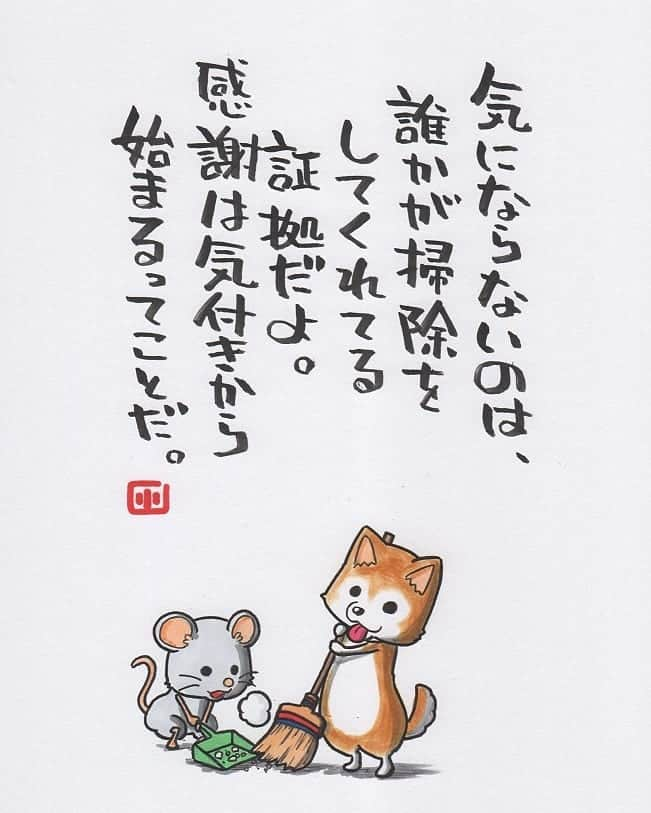 気にならないのは、
誰かが掃除を
してくれてる
証拠だよ。
感謝は気付きから
始まるってことだ。